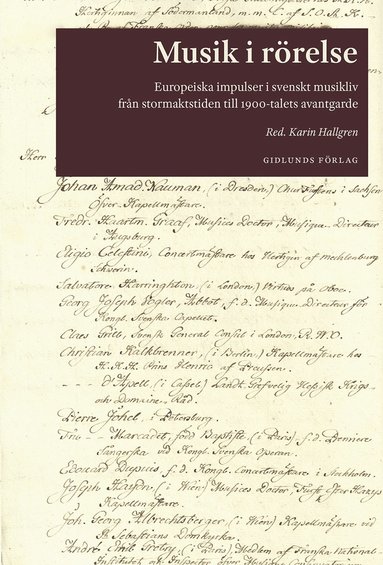 Hertiginnan af Södermanland, m. m. L. af S. O. Sk. R.
Musik i rörelse
Europeiska impulser i svenskt musikliv
från stormaktstiden till 1900-talets avantgarde
Red. Karin Hallgren
GIDLUNDS FÖRLAG
Herr
Johan Amad. Nauman, (i Dresden) Churfursens i Sachsen
Öfver-Kapellmästare.
Fredr. Hartm. Graaf, Musices Doctor, Musique-Directeur
i Augsburg.
Eligio Celestino, Concertmästare hos Hertigen af Mecklenburg
Schwerin.
Salvatore Harrington, (i London) Virtuos på Oboe.
Georg Joseph Vogler, Abbot, f. d. Musique-Directeur för
Kongl. Svenska Capellet.
Claes Grill, Svensk General Consul i London, R. W. O.
Christian Kalkbrenner, (i Berlin) Kapellmästare hos
H. K. H. Prins Henric af Preussen.
--- D'Apell (i Cassel) Landt Grefvelig Hessisk Krigs-
och Domaine-Råd.
Pierre Johel, i Petersburg.
Fru -- Marcadet, född Baptiste, (i Paris) f. d. Premiere
Sångerska vid Kongl. Svenska Operan.
Edouard Dupuis, f. d. Kongl. Concertmästare i Stockholm.
Joseph Haydn, (i Wien) Musices Doctor, Furst Esterhazys
Kapellmästare.
Joh. Georg Albrechtsberger, (i Wien) Kapellmästare vid
St. Sebastians Domkyrka.
André Ernst Gretry, (i Paris), Medlem af Franska National-
Institutet och Inspector öfver